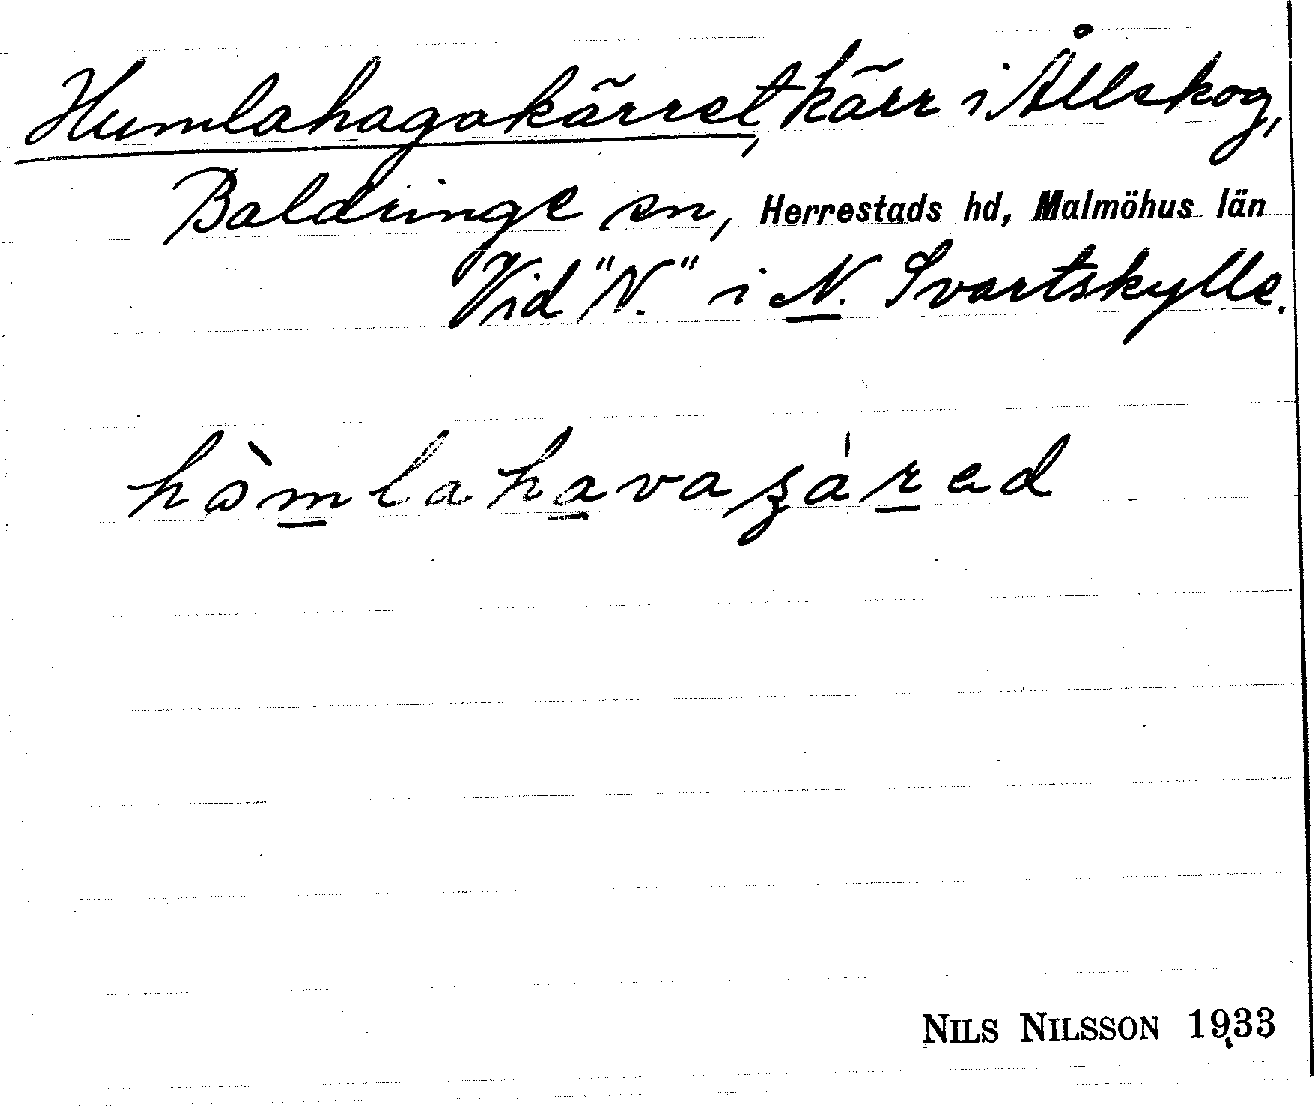 Humlahagakärret, kärr i Ållskog,
Baldringe sn, Herrestads hd, Malmöhus län
Vid "N." i N. Svartskylle.
hòmlahavaʒárad
NILS NILSSON 1933